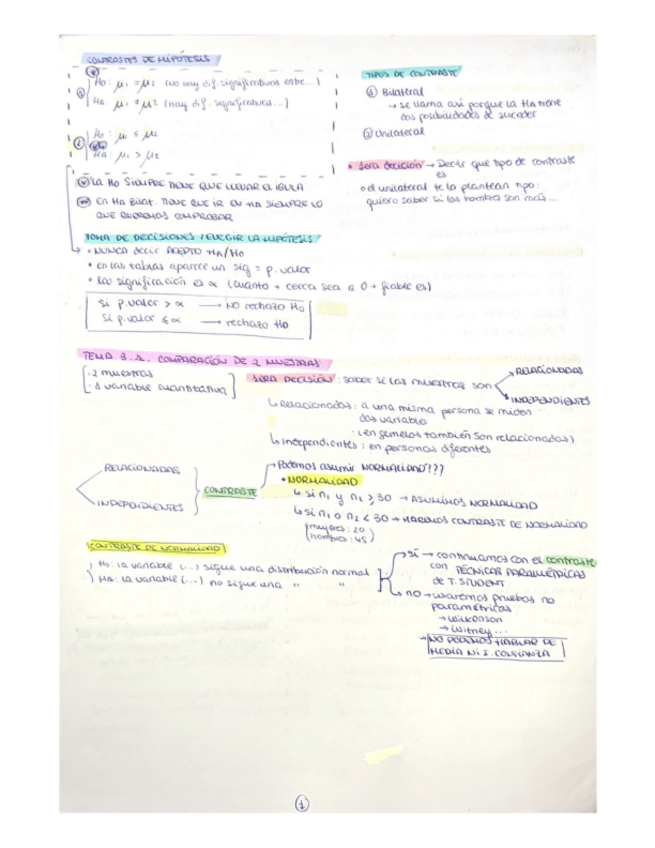 CONTRASTES DE HIPÓTESIS
Ho: μ1 = μ2 (no hay dif. significativas entre...)
Ha: μ1 ≠ μ2 (hay dif. significativas...)
Ho: μ1 ≤ μ2
Ha: μ1 > μ2
La Ho SIEMPRE TIENE QUE LLEVAR EL IGUAL
EN Ha Bilat. TIENE QUE IR EN Ha SIEMPRE LO
QUE QUEREMOS COMPROBAR
TIPOS DE CONTRASTE
① Bilateral
→ se llama así porque la Ha tiene
dos posibilidades de suceder
② Unilateral
• 1era decisión → Decir que tipo de contraste
es
o el unilateral te lo plantean tipo:
quiero saber si los hombres son más...
TOMA DE DECISIONES / ELEGIR LA HIPÓTESIS
• NUNCA decir ACEPTO Ha/Ho
• en las tablas aparece un sig = p.valor
• la significación es α (cuanto + cerca sea a 0 + fiable es)
Si p.valor > α → NO rechazo Ho
Si p.valor ≤ α → rechazo Ho
TEMA 3.1. COMPARACIÓN DE 2 MUESTRAS
· 2 muestras
· 1 variable cuantitativa
1ERA DECISIÓN: saber si las muestras son
RELACIONADAS
INDEPENDIENTES
↳ Relacionados: a una misma persona se miden
dos variables
(en gemelos también son relacionados)
↳ Independientes: en personas diferentes
RELACIONADAS
INDEPENDIENTES
CONTRASTE
→ Podemos asumir NORMALIDAD???
• NORMALIDAD
↳ si n1 y n2 ≥ 30 → ASUMIMOS NORMALIDAD
↳ si n1 o n2 < 30 → HAREMOS CONTRASTE DE NORMALIDAD
(mujeres: 20)
(hombres: 45)
CONTRASTE DE NORMALIDAD
Ho: la variable (...) sigue una distribución normal
Ha: la variable (...) no sigue una " "
sí → continuamos con el contraste
con TÉCNICAS PARAMÉTRICAS
de T. STUDENT
no → usaremos pruebas no
paramétricas
→ Wilkonson
→ Witney...
→ NO PODEMOS HABLAR DE
MEDIA NI I. CONFIANZA
1